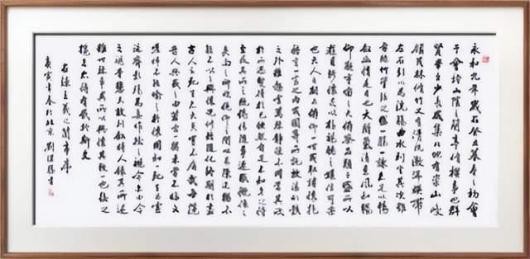 永和九年歲在癸丑暮春之初會
于會稽山陰之蘭亭修禊事也群
賢畢至少長咸集此地有崇山峻
領茂林修竹又有清流激湍暎帶
左右引以為流觴曲水列坐其次雖
無絲竹管弦之盛一觴一詠亦足以暢
敘幽情是日也天朗氣清惠風和暢
仰觀宇宙之大俯察品類之盛所以
遊目騁懷足以極視聽之娛信可樂
也夫人之相與俯仰一世或取諸懷抱
悟言一室之內或因寄所託放浪形骸
之外雖趣舍萬殊靜躁不同當其欣
於所遇暫得於己快然自足不知老之將
至及其所之既惓情隨事遷感慨係之
矣向之所欣俛仰之間已為陳迹猶不
能不以之興懷況修短隨化終期於盡
古人云死生亦大矣豈不痛哉每攬
昔人興感之由若合一契未嘗不臨文
嗟悼不能喻之於懷固知一死生為虛
誕齊彭殤為妄作後之視今亦由今
之視昔悲夫故列敘時人錄其所述
雖世殊事異所以興懷其致一也後之
攬者亦將有感於斯文
右錄王羲之蘭亭序
庚寅年春於北京劉